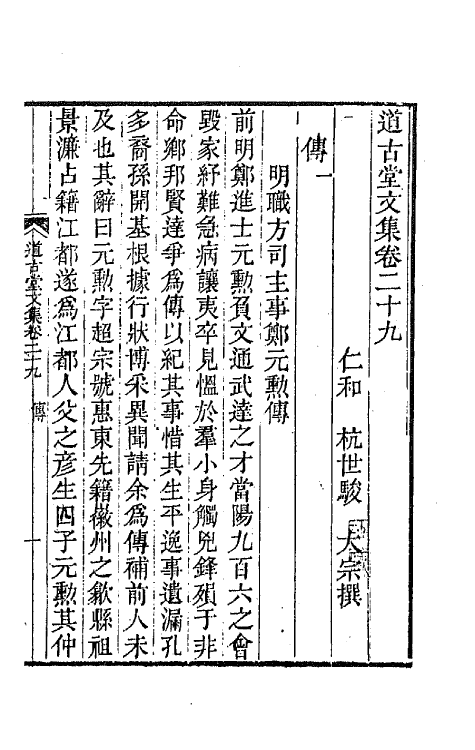 道古堂文集卷二十九
仁和　杭世駿　大宗撰
傳一
明職方司主事鄭元勲傳
前明鄭進士元勲負文通武達之才當陽九百六之會
毀家紓難急病讓夷卒見慍於羣小身觸兇鋒殞于非
命鄉邦賢達爭爲傳以紀其事惜其生平逸事遺漏孔
多裔孫開基根據行狀博采異聞請余爲傳補前人未
及也其辭曰元勲字超宗號惠東先籍徽州之歙縣祖
景濂占籍江都遂爲江都人父之彦生四子元勲其仲
道古堂文集卷二十九　傳　一